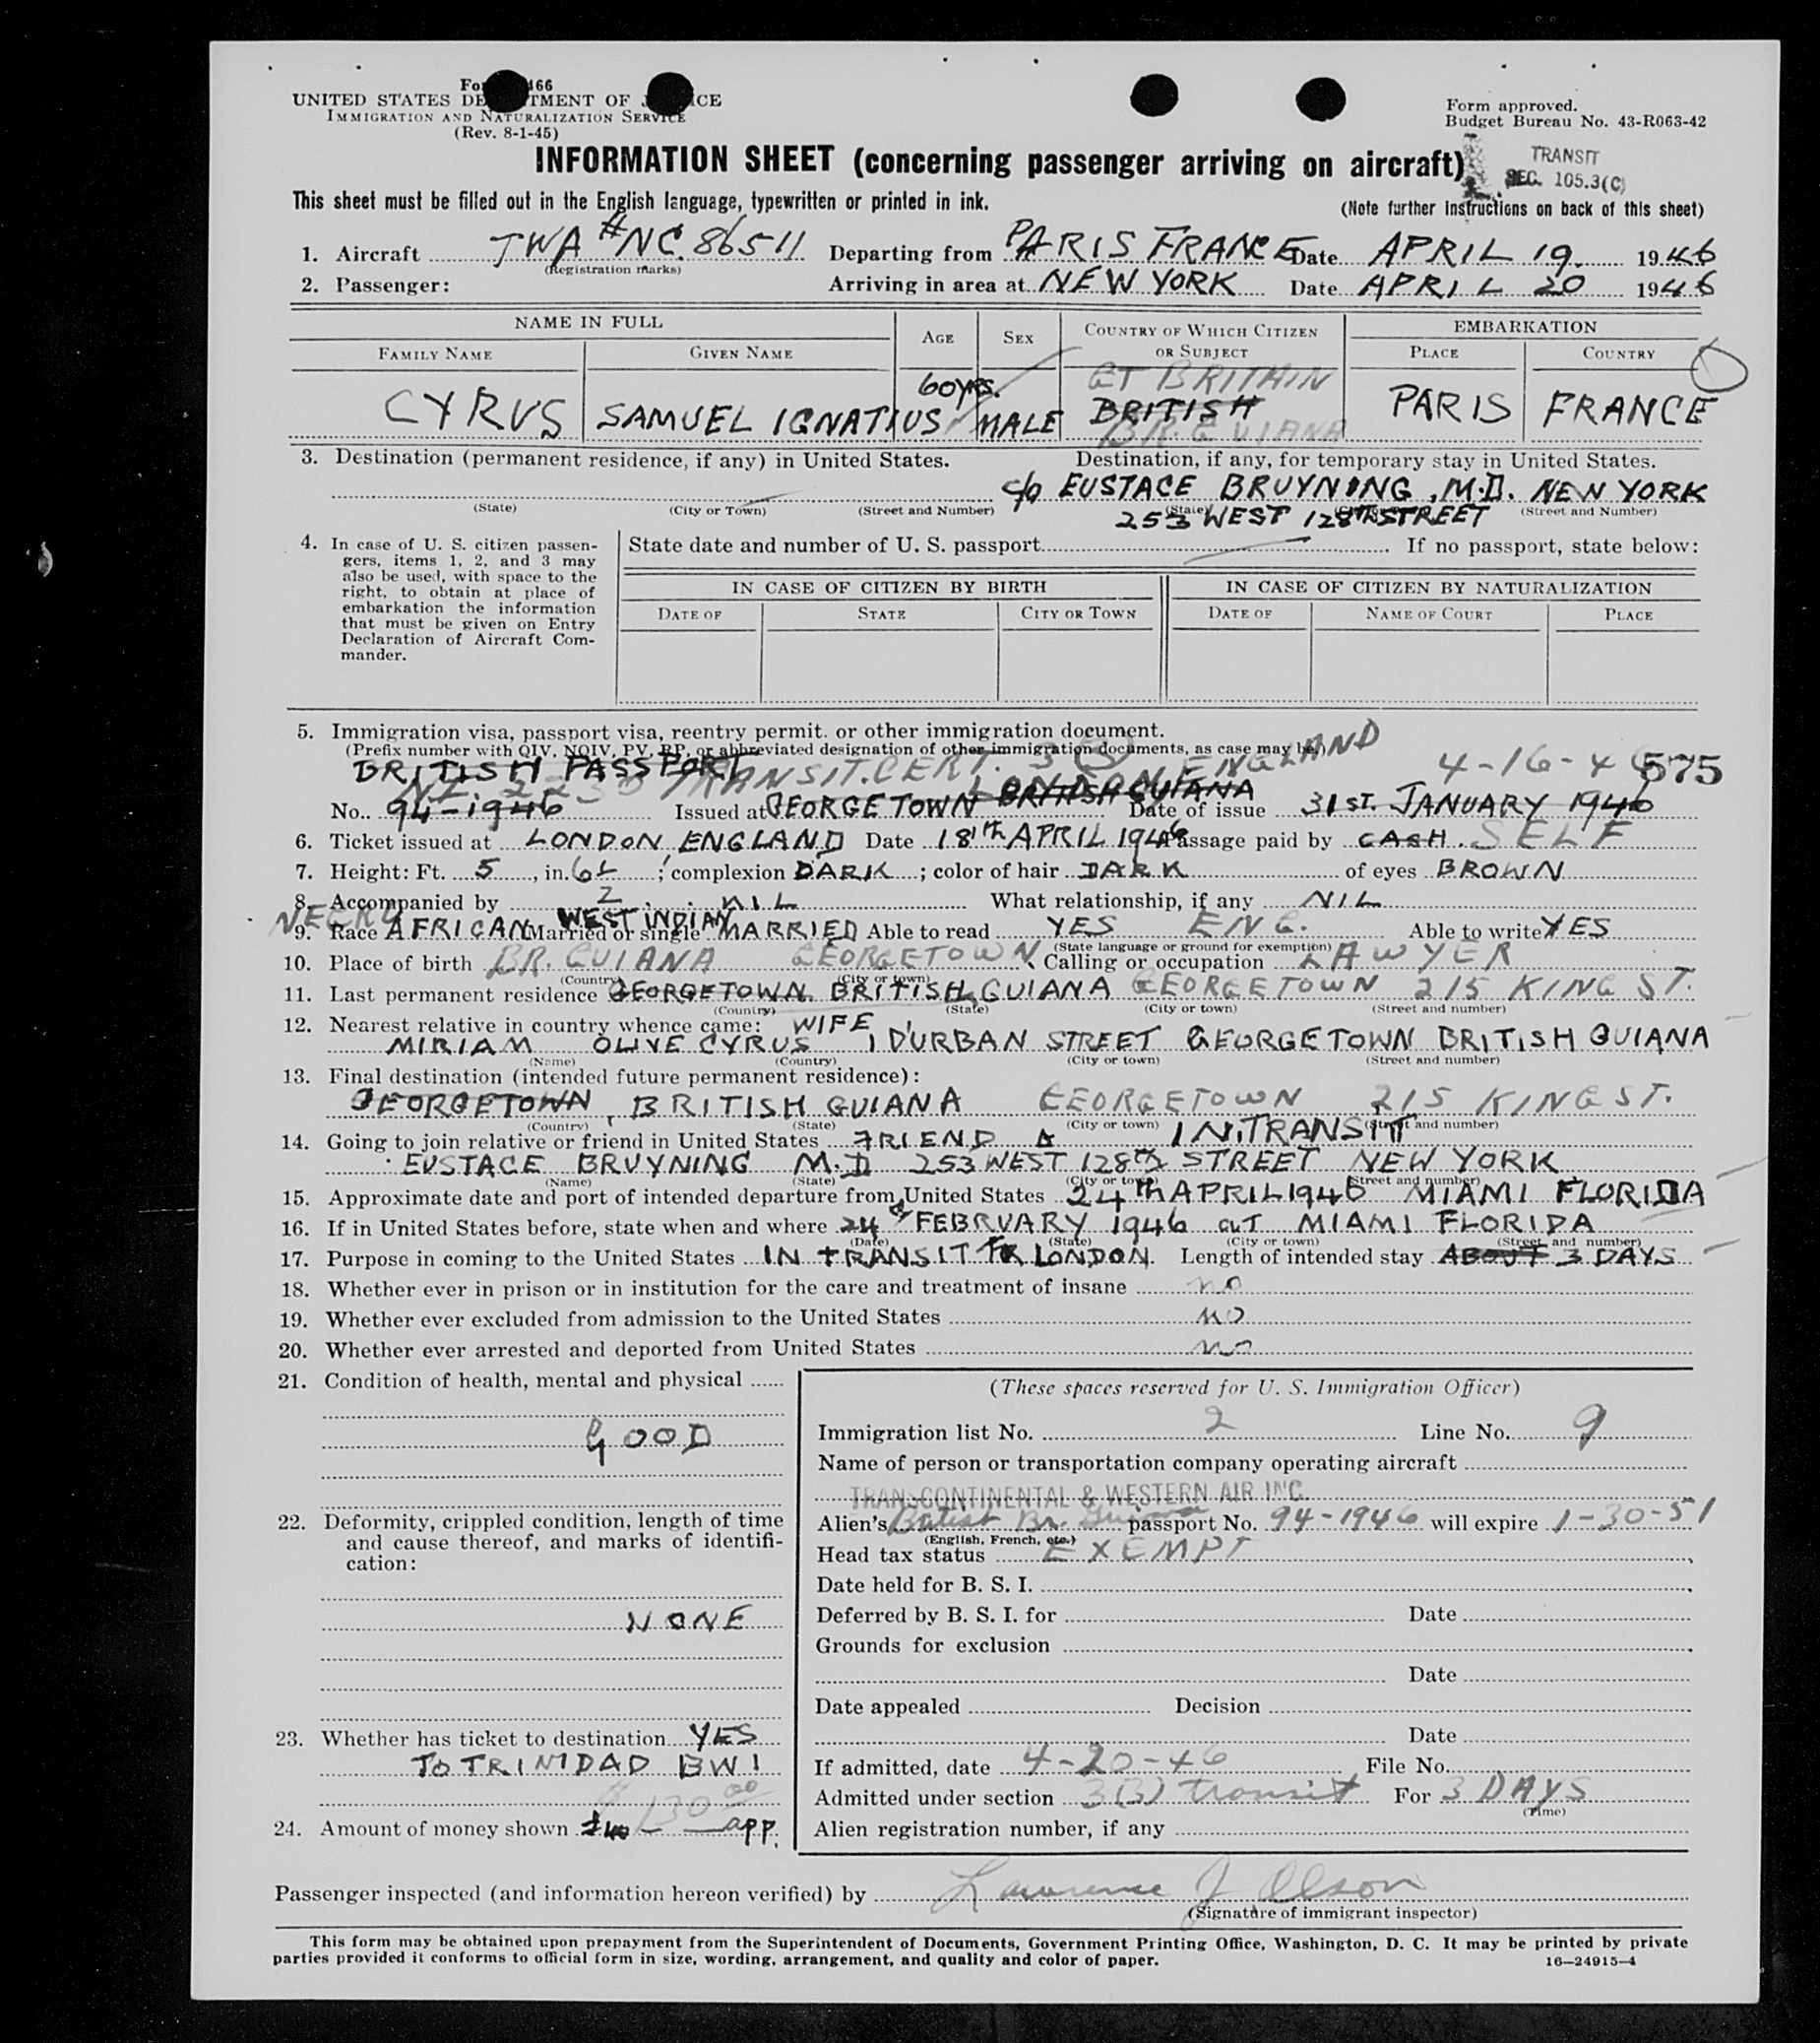 UNITED STATES DE TMENT OF J ICE
IMMIGRATION AND NATURALIZATION SERVICE
(Rev. 8-1-45)
Form approved.
Budget Bureau No. 43-R063-42
INFORMATION SHEET (concerning passenger arriving on aircraft)
TRANSIT
SEC. 105.3(C)
This sheet must be filled out in the English language, typewritten or printed in ink.
(Note further instructions on back of this sheet)
1. Aircraft TWA #NC.86511 Departing from PARIS FRANCE Date APRIL 19. 1946
(Registration marks)
2. Passenger: Arriving in area at NEW YORK Date APRIL 20 1946
NAME IN FULL AGE SEX COUNTRY OF WHICH CITIZEN OR SUBJECT EMBARKATION
FAMILY NAME GIVEN NAME PLACE COUNTRY
60yrs. GT BRITAIN
CYRUS SAMUEL IGNATIUS MALE BRITISH PARIS FRANCE
BR. GUIANA
3. Destination (permanent residence, if any) in United States. Destination, if any, for temporary stay in United States.
c/o EUSTACE BRUYNING, M.D. NEW YORK
(State) (City or Town) (Street and Number) (State) (Street and Number)
253 WEST 128TH STREET
4. In case of U. S. citizen passengers, items 1, 2, and 3 may also be used, with space to the right, to obtain at place of embarkation the information that must be given on Entry Declaration of Aircraft Commander.
State date and number of U. S. passport. If no passport, state below:
IN CASE OF CITIZEN BY BIRTH IN CASE OF CITIZEN BY NATURALIZATION
DATE OF STATE CITY OR TOWN DATE OF NAME OF COURT PLACE
5. Immigration visa, passport visa, reentry permit. or other immigration document.
(Prefix number with QIV, NQIV, PV, RP, or abbreviated designation of other immigration documents, as case may be.)
BRITISH PASSPORT TRANSIT. CERT. LONDON ENGLAND 4-16-46 575
No. 94-1946 Issued at GEORGETOWN BRITISH GUIANA Date of issue 31ST. JANUARY 1946
6. Ticket issued at LONDON ENGLAND Date 18th APRIL 1946 Passage paid by CASH. SELF
7. Height: Ft. 5, in. 6½; complexion DARK; color of hair DARK of eyes BROWN
8. Accompanied by NIL What relationship, if any NIL
NEGRO WEST INDIAN
9. Race AFRICAN Married or single MARRIED Able to read YES ENG. Able to write YES
(State language or ground for exemption)
10. Place of birth BR. GUIANA GEORGETOWN Calling or occupation LAWYER
(Country) (City or town)
11. Last permanent residence GEORGETOWN BRITISH GUIANA GEORGETOWN 215 KING ST.
(Country) (State) (City or town) (Street and number)
12. Nearest relative in country whence came: WIFE
MIRIAM OLIVE CYRUS 1 DURBAN STREET GEORGETOWN BRITISH GUIANA
(Name) (Country) (City or town) (Street and number)
13. Final destination (intended future permanent residence):
GEORGETOWN, BRITISH GUIANA GEORGETOWN 215 KING ST.
(Country) (State) (City or town) (Street and number)
14. Going to join relative or friend in United States FRIEND IN TRANSIT
EUSTACE BRUYNING M.D 253 WEST 128th STREET NEW YORK
(Name) (State) (City or town) (Street and number)
15. Approximate date and port of intended departure from United States 24th APRIL 1946 MIAMI FLORIDA
16. If in United States before, state when and where 24 FEBRUARY 1946 at MIAMI FLORIDA
(Date) (State) (City or town) (Street and number)
17. Purpose in coming to the United States IN TRANSIT FR LONDON. Length of intended stay ABOUT 3 DAYS
18. Whether ever in prison or in institution for the care and treatment of insane no
19. Whether ever excluded from admission to the United States no
20. Whether ever arrested and deported from United States no
21. Condition of health, mental and physical
GOOD
22. Deformity, crippled condition, length of time and cause thereof, and marks of identification:
NONE
23. Whether has ticket to destination YES
TO TRINIDAD BWI
130 00
24. Amount of money shown app.
(These spaces reserved for U. S. Immigration Officer)
Immigration list No. 2 Line No. 9
Name of person or transportation company operating aircraft
TRANSCONTINENTAL & WESTERN AIR INC.
Alien's Br. Guiana passport No. 94-1946 will expire 1-30-51
(English, French, etc.)
Head tax status EXEMPT
Date held for B. S. I.
Deferred by B. S. I. for Date
Grounds for exclusion
Date
Date appealed Decision
Date
If admitted, date 4-20-46 File No.
Admitted under section 3(3) transit For 3 DAYS
(Time)
Alien registration number, if any
Passenger inspected (and information hereon verified) by Lawrence J Olson
(Signature of immigrant inspector)
This form may be obtained upon prepayment from the Superintendent of Documents, Government Printing Office, Washington, D. C. It may be printed by private
parties provided it conforms to official form in size, wording, arrangement, and quality and color of paper.
16—24915-4